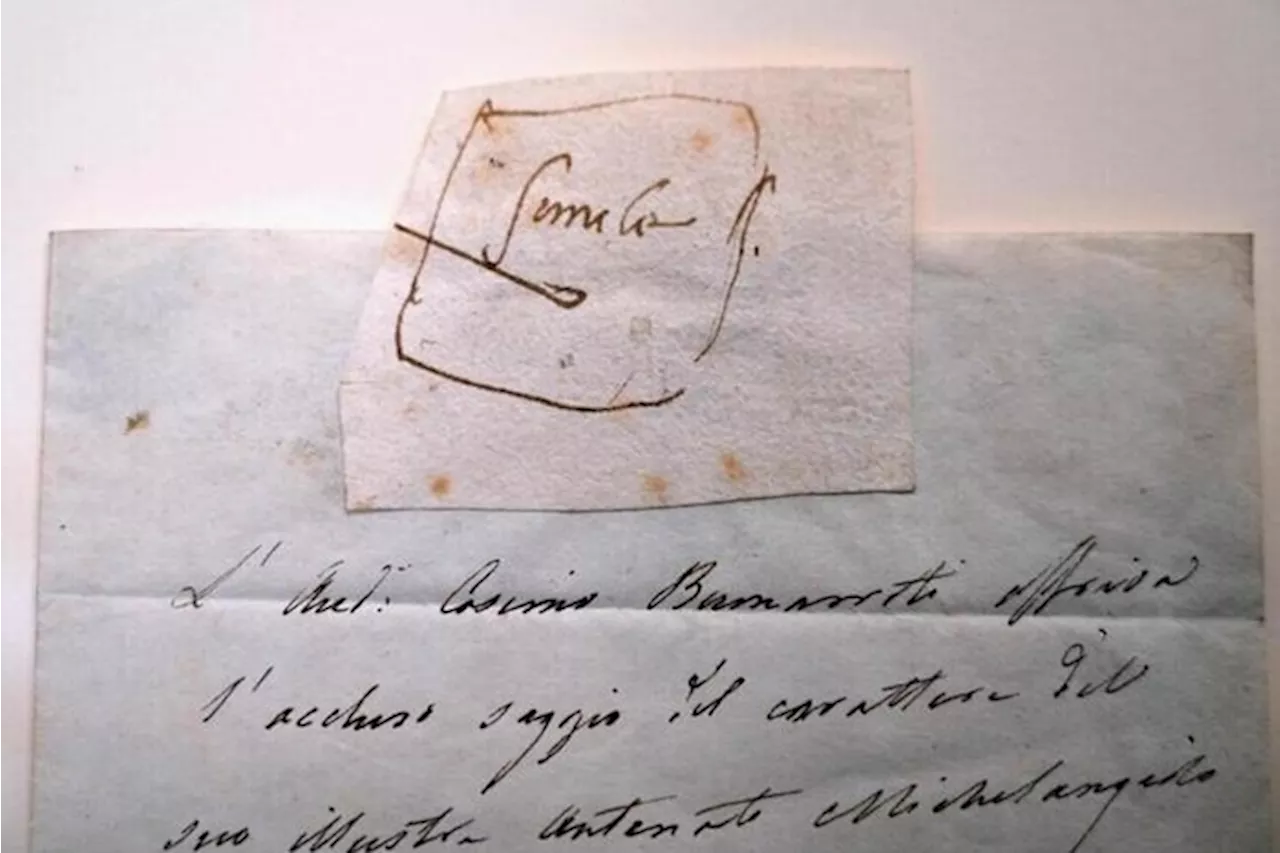 simile
L' Aud: Cosimo Buonarroti offriva
l' accluso saggio del carattere del
suo illustre Antenato Michelangiolo